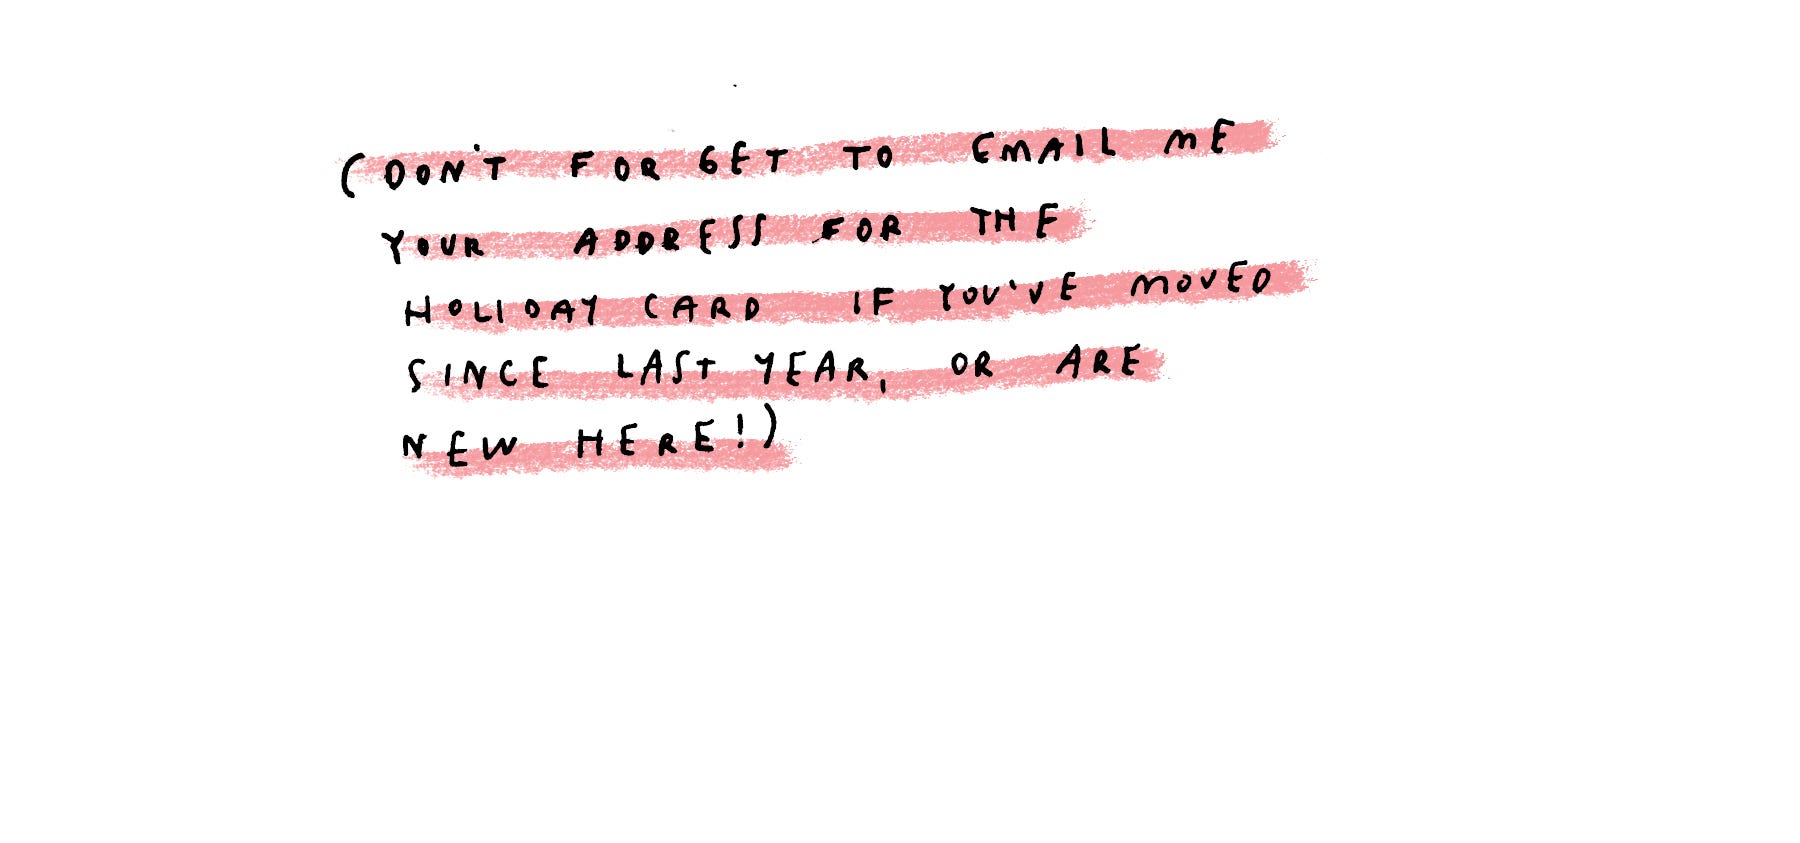 (DON'T FORGET TO EMAIL ME
YOUR ADDRESS FOR THE
HOLIDAY CARD IF YOU'VE MOVED
SINCE LAST YEAR, OR ARE
NEW HERE!)